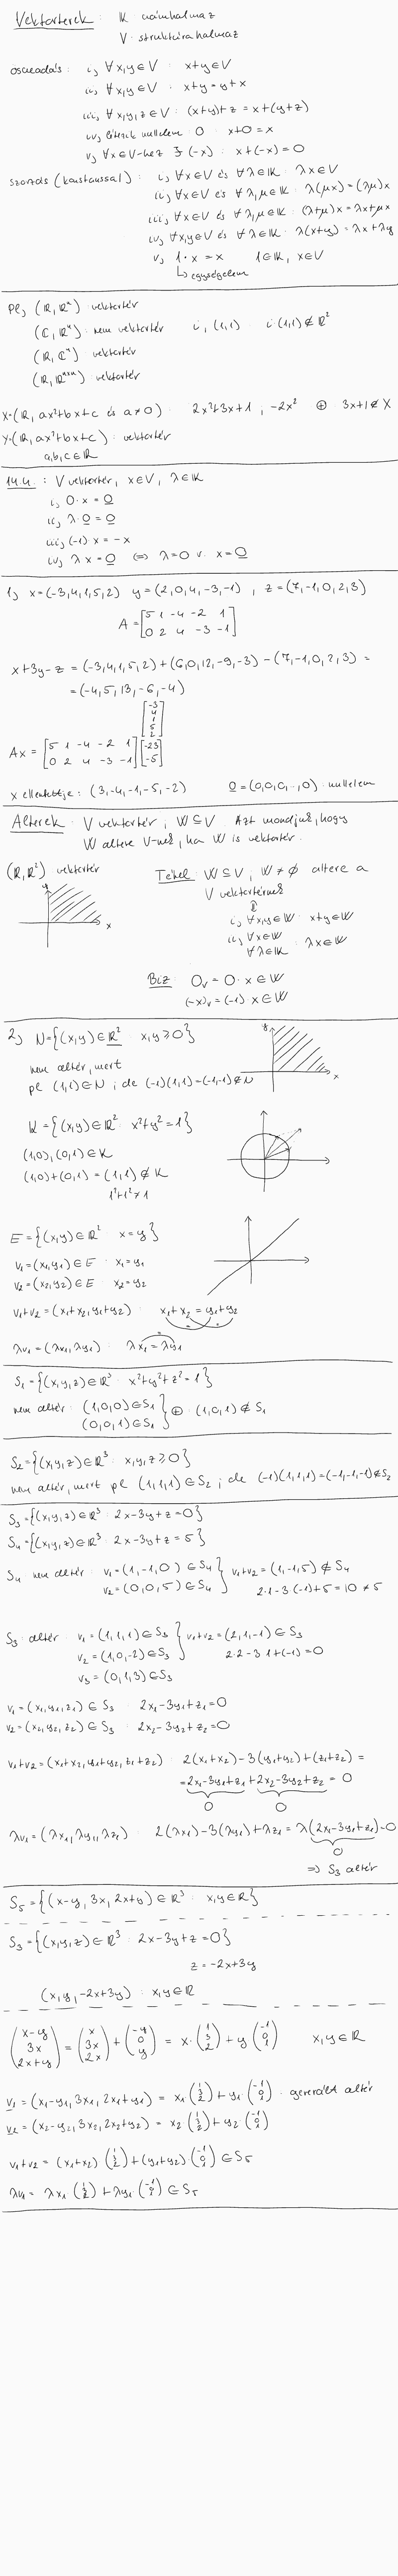 Vektorterek : K számhalmaz
V struktúrahalmaz
összeadás : i, ∀x,y∈V : x+y∈V
ii, ∀x,y∈V : x+y=y+x
iii, ∀x,y,z∈V : (x+y)+z = x+(y+z)
iv, létezik nullelem 0 : x+0=x
v, ∀x∈V-hez ∃(-x) : x+(-x)=0
szorzás (konstanssal) : i, ∀x∈V és ∀λ∈K : λx∈V
ii, ∀x∈V és ∀λ,μ∈K : λ(μx)=(λμ)x
iii, ∀x∈V és ∀λ,μ∈K : (λ+μ)x=λx+μx
iv, ∀x,y∈V és ∀λ∈K : λ(x+y)=λx+λy
v, 1·x=x 1∈K, x∈V
↳ egységelem
Pl, (R,Rⁿ) vektortér
(C,Rⁿ) : nem vektortér i, (1,1) i·(1,1)∉R²
(R,Cⁿ) vektortér
(R,Rⁿˣⁿ) vektortér
X=(R, ax²+bx+c és a≠0) : 2x²+3x+1 ; -2x² ⊕ 3x+1∉X
Y=(R, ax²+bx+c) : vektortér
a,b,c∈R
14.4. : V vektortér, x∈V, λ∈K
i, 0·x=0
ii, λ·0=0
iii, (-1)x=-x
iv, λx=0 ⇔ λ=0 v. x=0
1, x=(-3,4,1,5,2) y=(2,0,4,-3,-1), z=(7,-1,0,2,3)
A=[5 1 -4 -2 1
0 2 4 -3 -1]
x+3y-z=(-3,4,1,5,2)+(6,0,12,-9,-3)-(7,-1,0,2,3)=
=(-4,5,13,-6,-4)
[-3
4
1
5
2]
Ax=[5 1 -4 -2 1
0 2 4 -3 -1] [-23
-5]
x ellentettje : (3,-4,-1,-5,-2) 0=(0,0,0,..,0) : nullelem
Alterek : V vektortér, W⊆V. Azt mondjuk, hogy
W altere V-nek, ha W is vektortér.
(R,R²) vektortér
y
x
Tétel : W⊆V, W≠∅ altere a
V vektortérnek
⇕
i, ∀x,y∈W : x+y∈W
ii, ∀x∈W
∀λ∈K : λx∈W
Biz : 0ᵥ=0·x∈W
(-x)ᵥ=(-1)·x∈W
2, N={(x,y)∈R² : x,y≥0}
nem altér, mert
pl (1,1)∈N ; de (-1)(1,1)=(-1,-1)∉N
y
x
K={(x,y)∈R² : x²+y²=1}
(1,0),(0,1)∈K
(1,0)+(0,1)=(1,1)∉K
1²+1²≠1
E={(x,y)∈R² : x=y}
v₁=(x₁,y₁)∈E : x₁=y₁
v₂=(x₂,y₂)∈E : x₂=y₂
v₁+v₂=(x₁+x₂,y₁+y₂) : x₁+x₂=y₁+y₂
λv₁=(λx₁,λy₁) : λx₁=λy₁
S₁={(x,y,z)∈R³ : x²+y²+z²=1}
nem altér : (1,0,0)∈S₁
(0,0,1)∈S₁ } ⊕ : (1,0,1)∉S₁
S₂={(x,y,z)∈R³ : x,y,z≥0}
nem altér, mert pl (1,1,1)∈S₂ ; de (-1)(1,1,1)=(-1,-1,-1)∉S₂
S₃={(x,y,z)∈R³ : 2x-3y+z=0}
S₄={(x,y,z)∈R³ : 2x-3y+z=5}
S₄ nem altér : v₁=(1,-1,0)∈S₄
v₂=(0,0,5)∈S₄ } v₁+v₂=(1,-1,5)∉S₄
2·1-3·(-1)+5=10≠5
S₃ : altér : v₁=(1,1,1)∈S₃
v₂=(1,0,-2)∈S₃ } v₁+v₂=(2,1,-1)∈S₃
2·2-3·1+(-1)=0
v₃=(0,1,3)∈S₃
v₁=(x₁,y₁,z₁)∈S₃ : 2x₁-3y₁+z₁=0
v₂=(x₂,y₂,z₂)∈S₃ : 2x₂-3y₂+z₂=0
v₁+v₂=(x₁+x₂,y₁+y₂,z₁+z₂) : 2(x₁+x₂)-3(y₁+y₂)+(z₁+z₂)=
=2x₁-3y₁+z₁+2x₂-3y₂+z₂=0
0 0
λv₁=(λx₁,λy₁,λz₁) : 2(λx₁)-3(λy₁)+λz₁=λ(2x₁-3y₁+z₁)=0
0
⇒ S₃ altér
S₅={(x-y,3x,2x+y)∈R³ : x,y∈R}
S₃={(x,y,z)∈R³ : 2x-3y+z=0}
z=-2x+3y
(x,y,-2x+3y) : x,y∈R
(x-y
3x
2x+y) = (x
3x
2x) + (-y
0
y) = x·(1
3
2) + y(-1
0
1) x,y∈R
v₁=(x₁-y₁,3x₁,2x₁+y₁)=x₁(1 3 2)+y₁(-1 0 1) : generált altér
v₂=(x₂-y₂,3x₂,2x₂+y₂)=x₂(1 3 2)+y₂(-1 0 1)
v₁+v₂=(x₁+x₂)(1 3 2)+(y₁+y₂)·(-1 0 1)∈S₅
λv₁=λx₁(1 3 2)+λy₁(-1 0 1)∈S₅